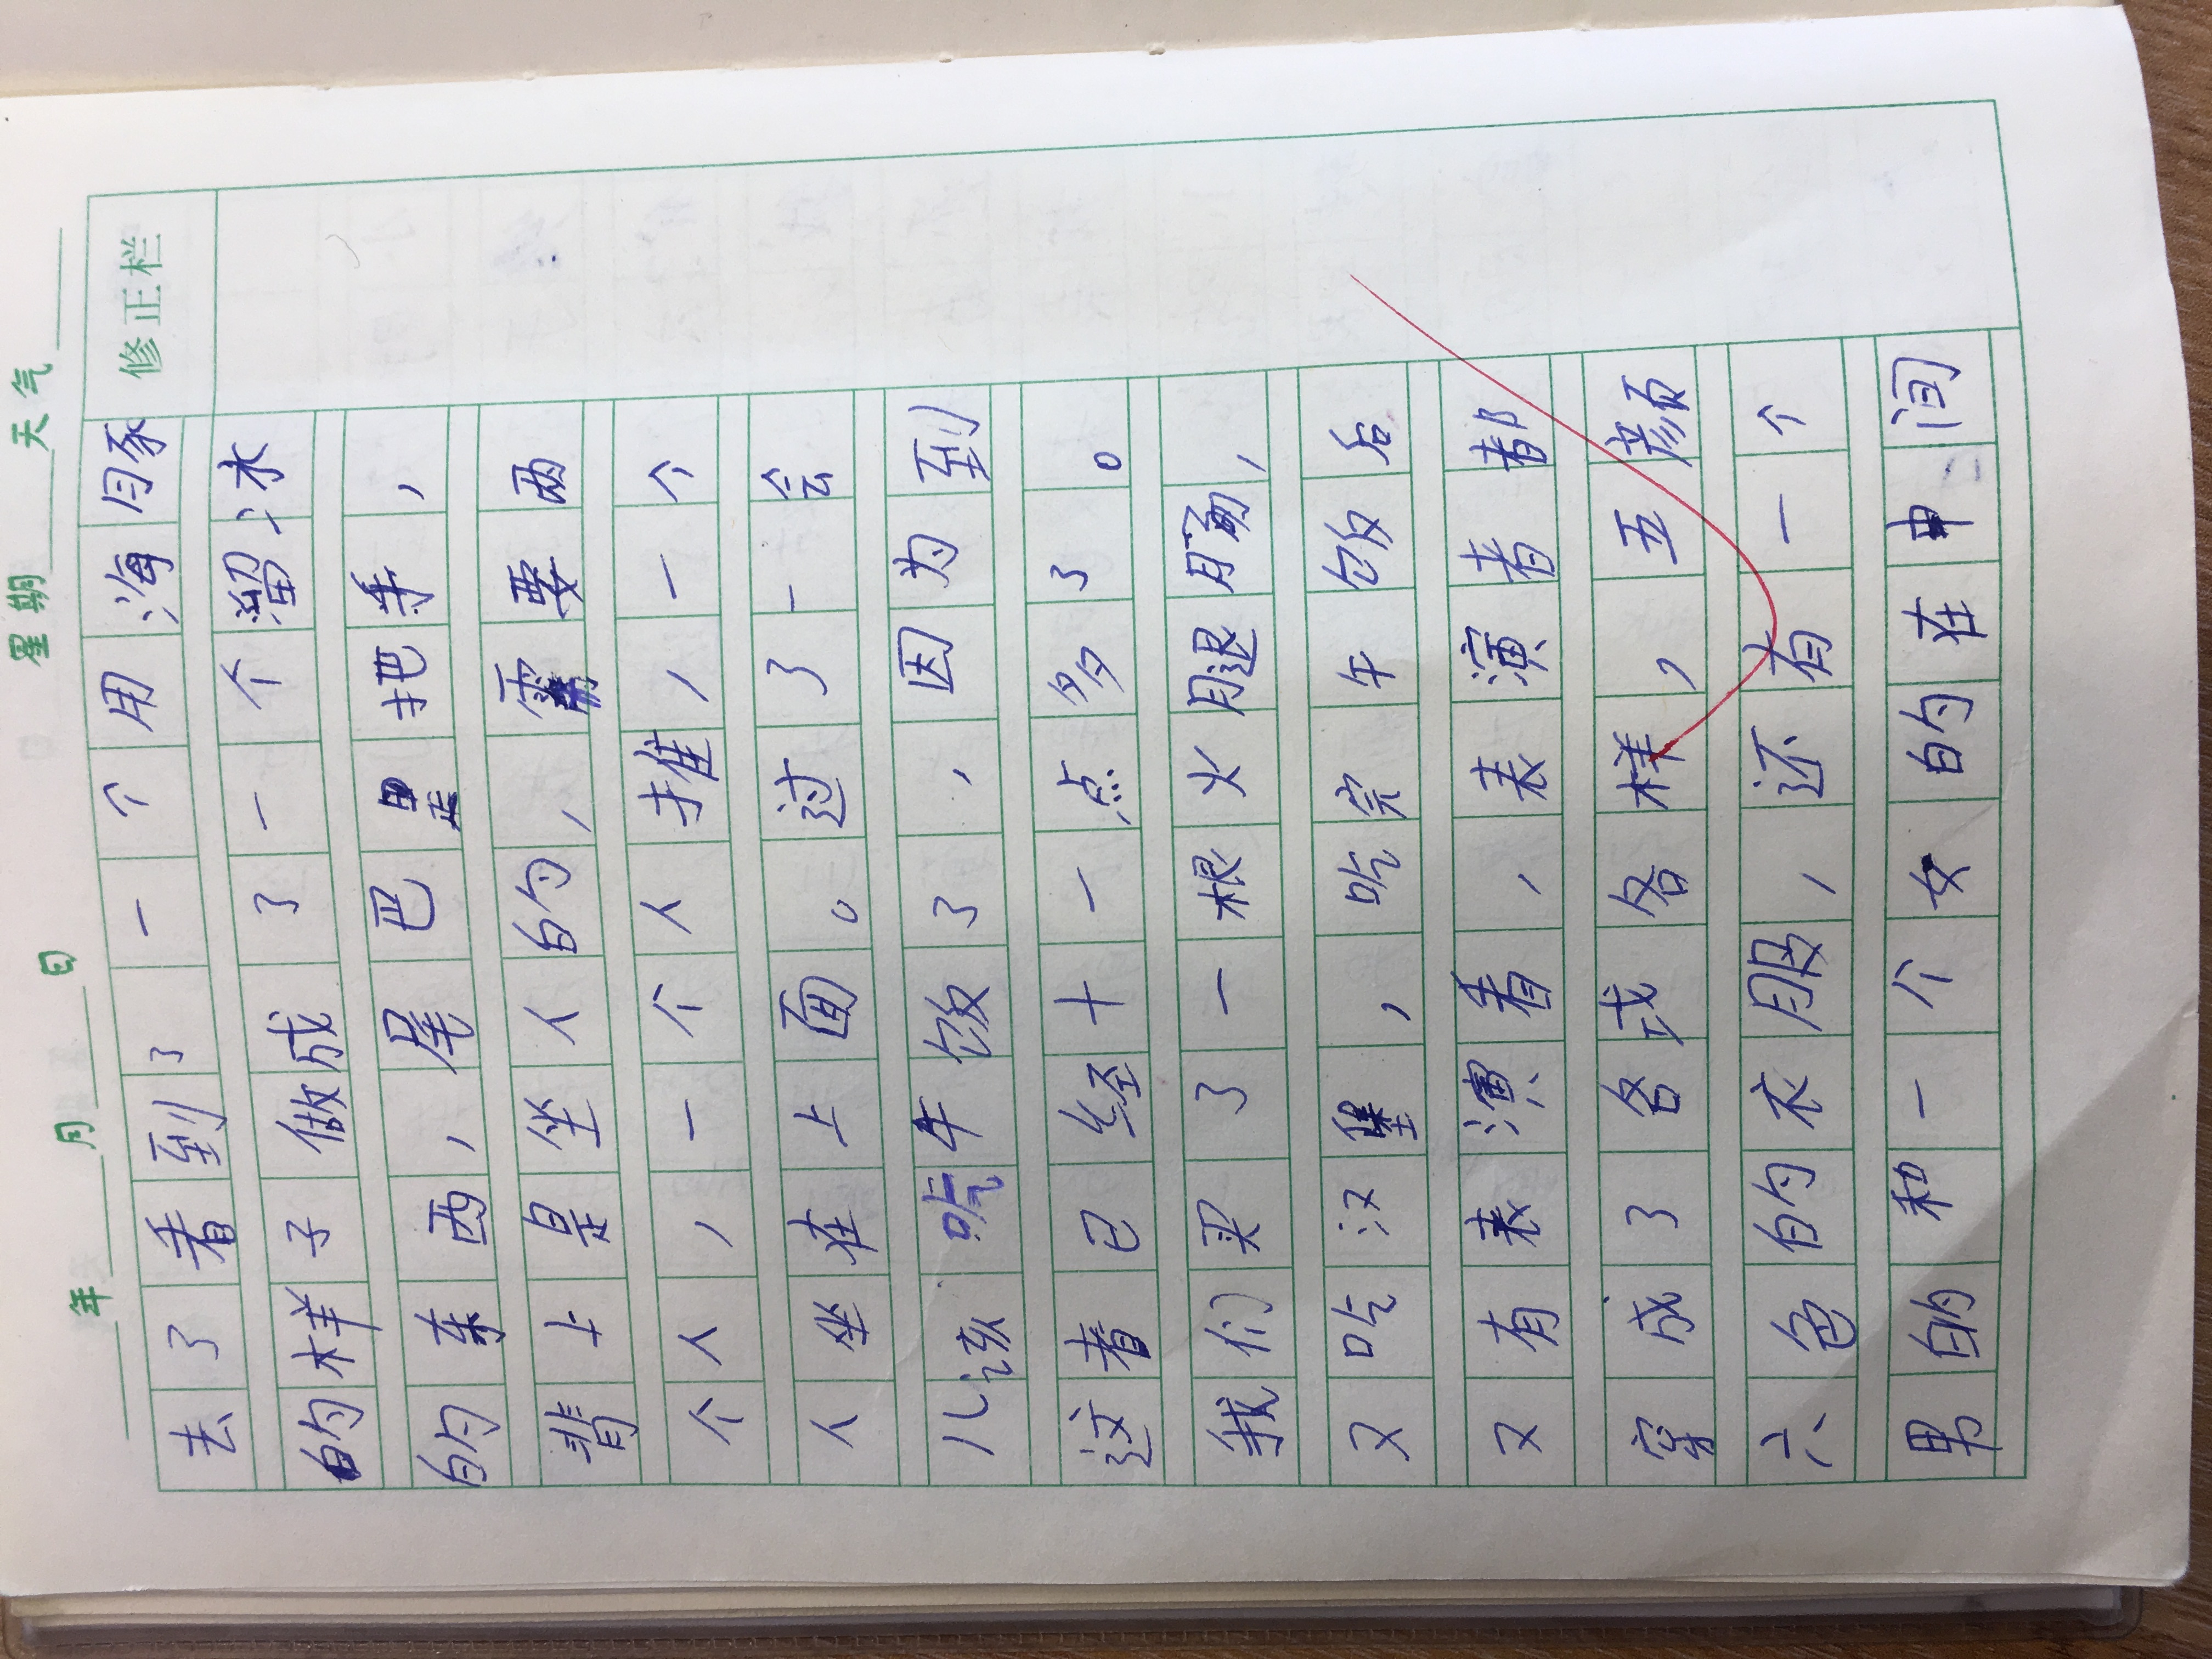 年 月 日 星期 天气
修正栏
去了看到了一个用海豚
的样子做成了一个溜冰
的东西，尾巴是把手，
背上是坐人的，需要两
个人，一个人推，一个
人坐在上面。过了一会
儿该吃午饭了，因为到
这着已经十一点多了。
我们买了一根火腿肠，
又吃汉堡，吃完午饭后
又有表演看，表演者都
穿成了各式各样，五颜
六色的衣服，还有一个
男的和一个女的在中间